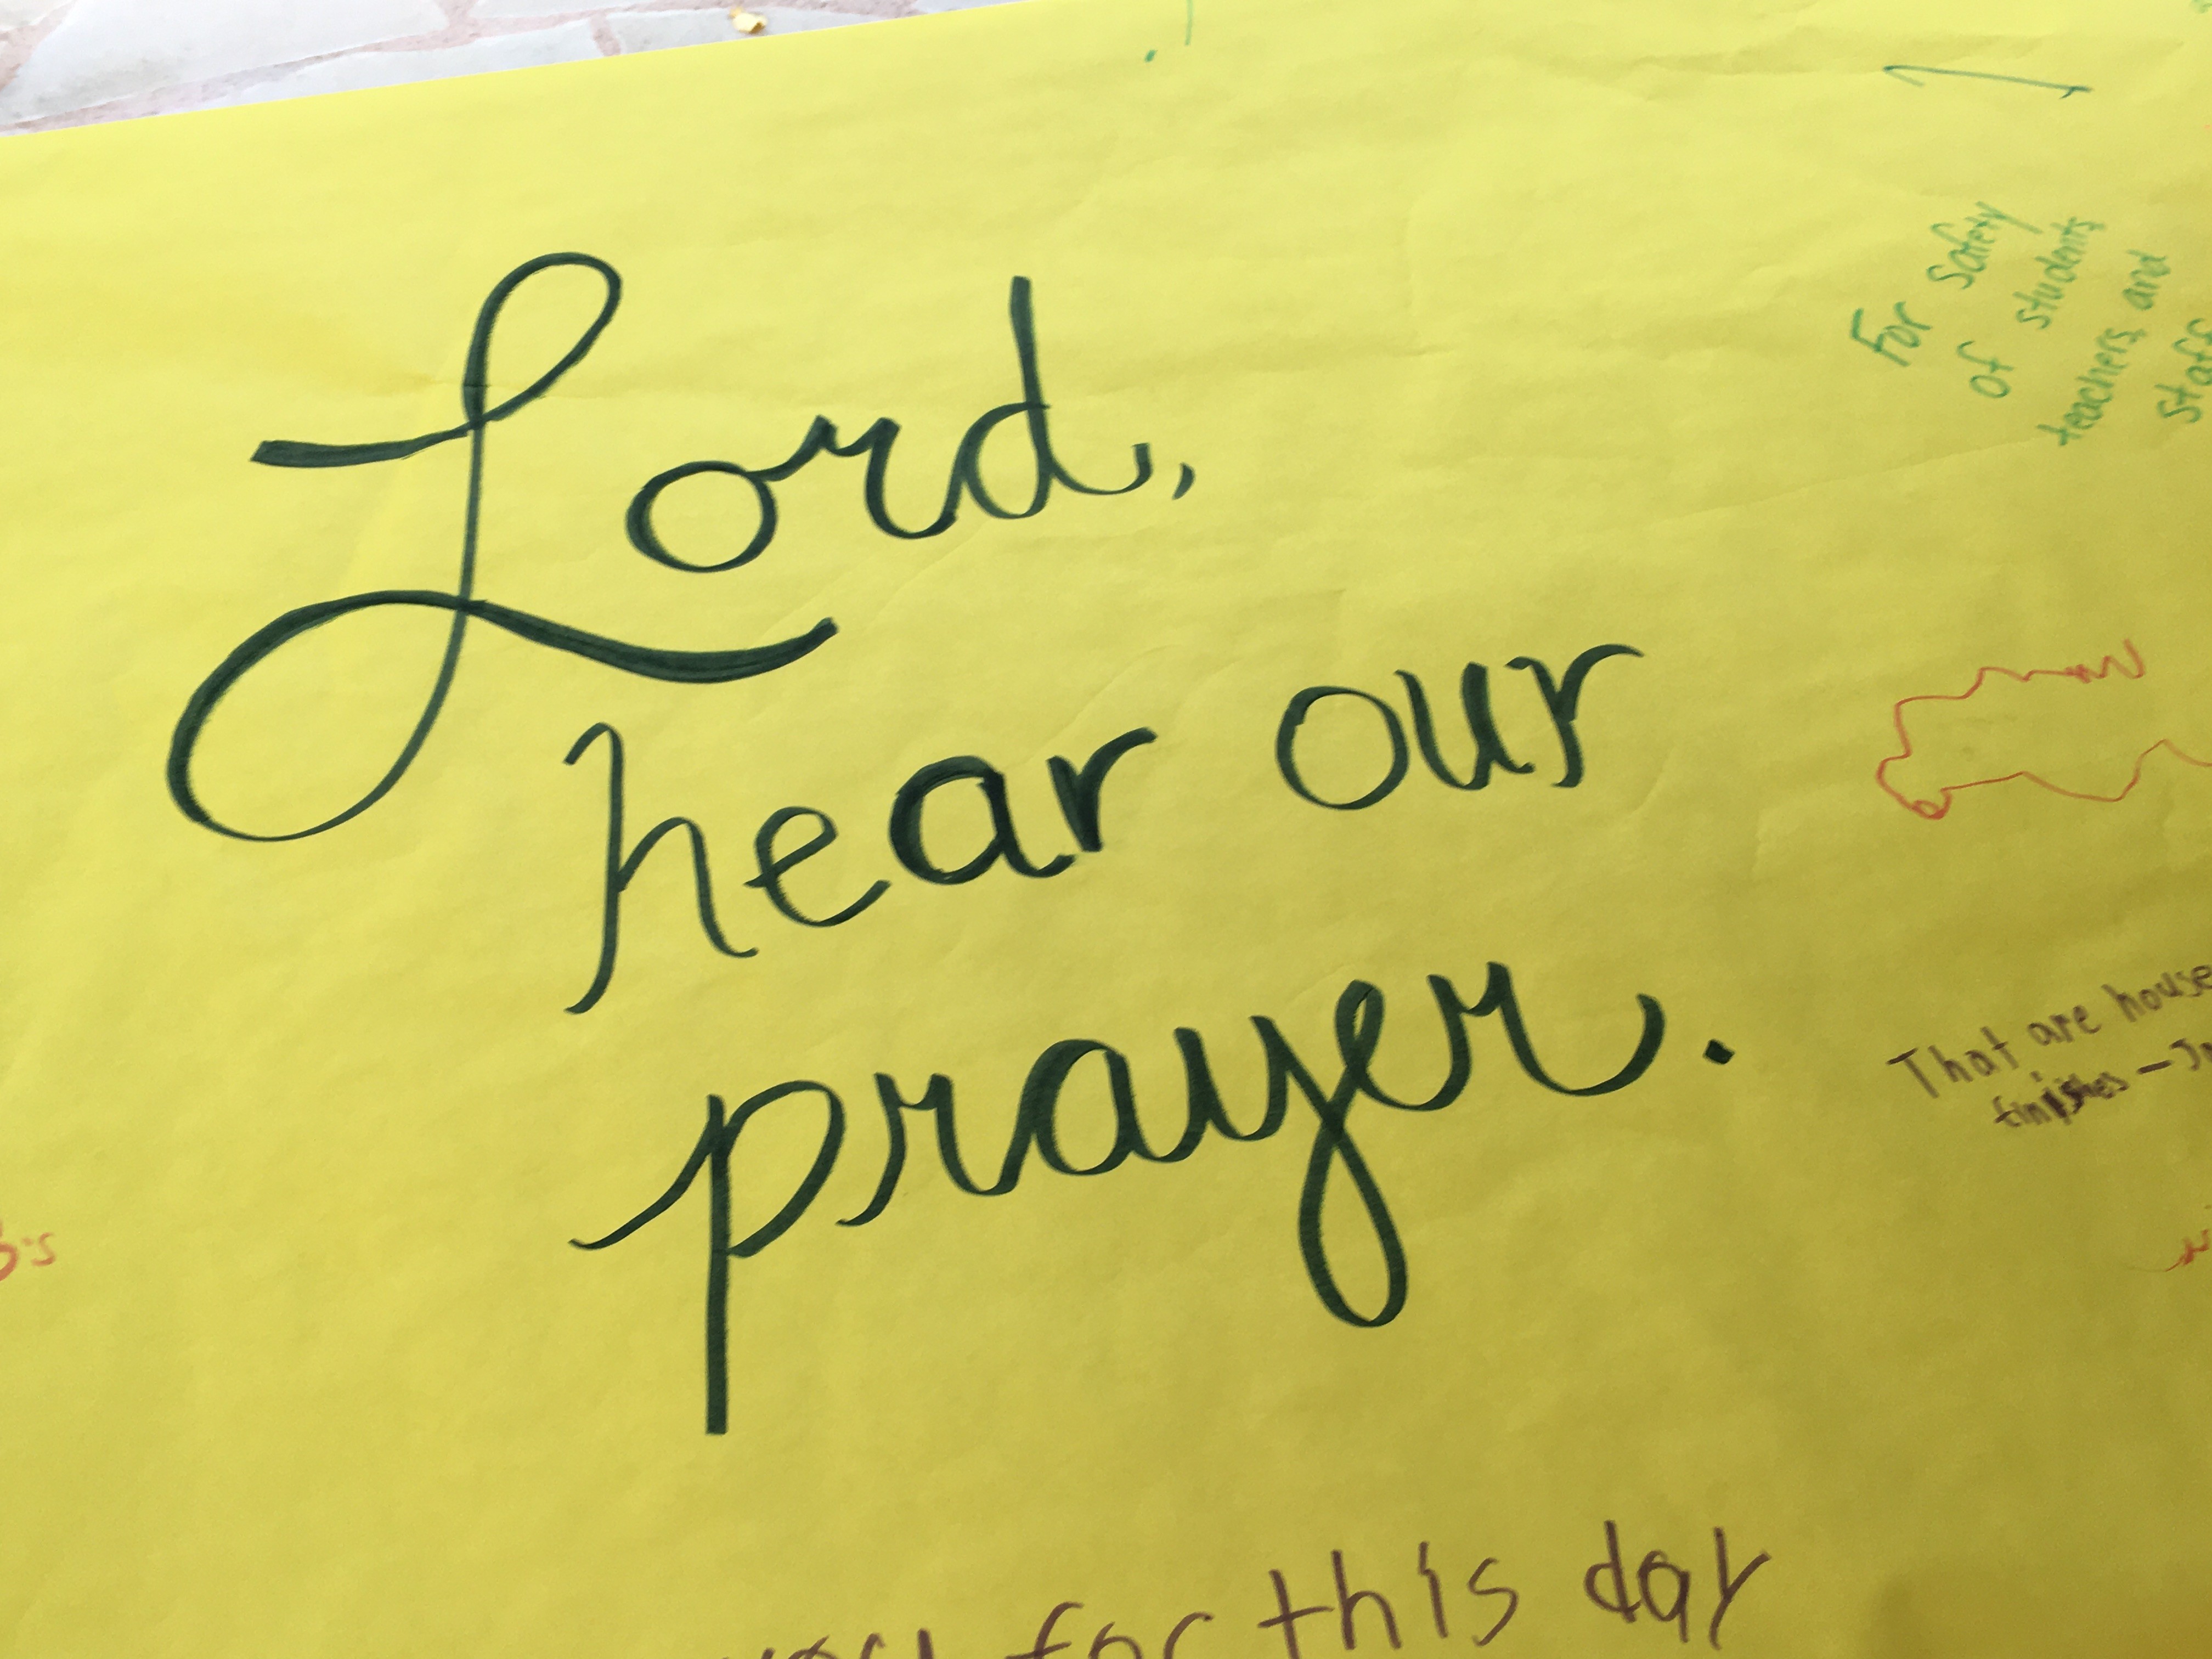 Lord,
hear our
prayer.
For safety
of students
teachers, and
staff
That are house
finishes –
for this day